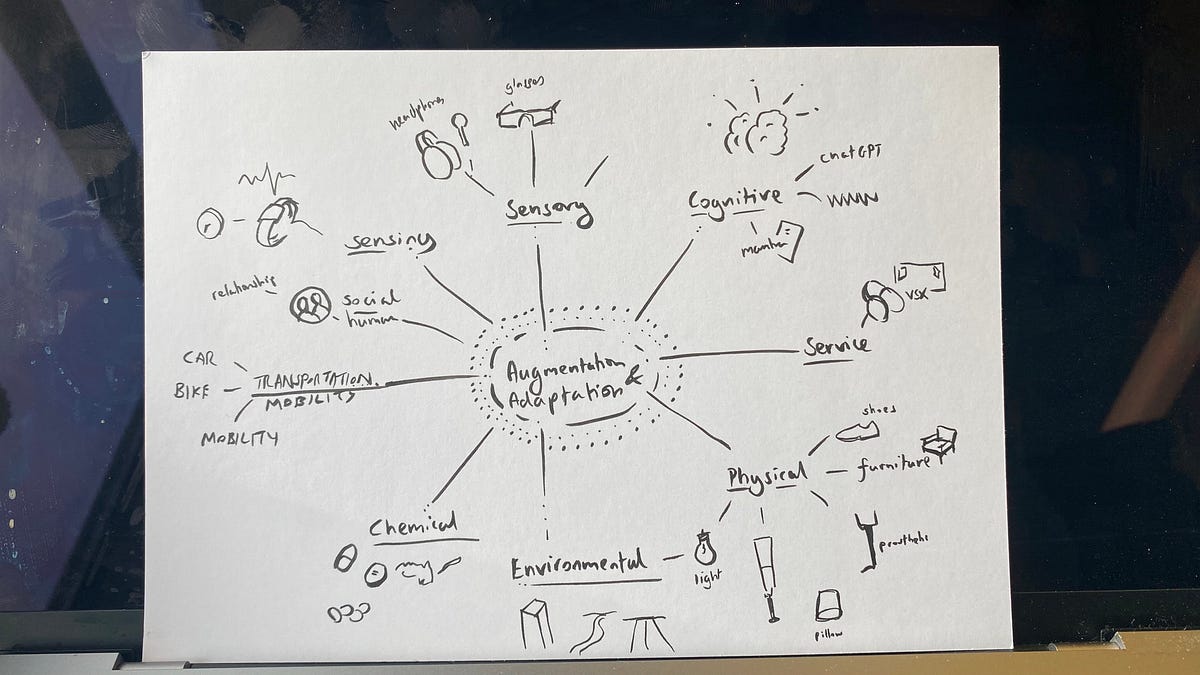 glasses
headphones
chatGPT
Cognitive
Sensory
sensing
relationship
social
human
VSK
Service
CAR
BIKE
TRANSPORTATION
MOBILITY
MOBILITY
Augmentation
&
Adaptation
shoes
Physical
furniture
Chemical
Environmental
light
pillow